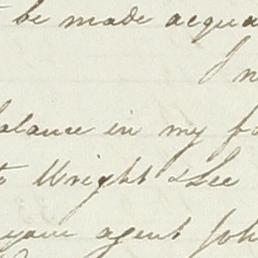 be made acqua
balance in my fa
to Wright & Lee
your agent Joh